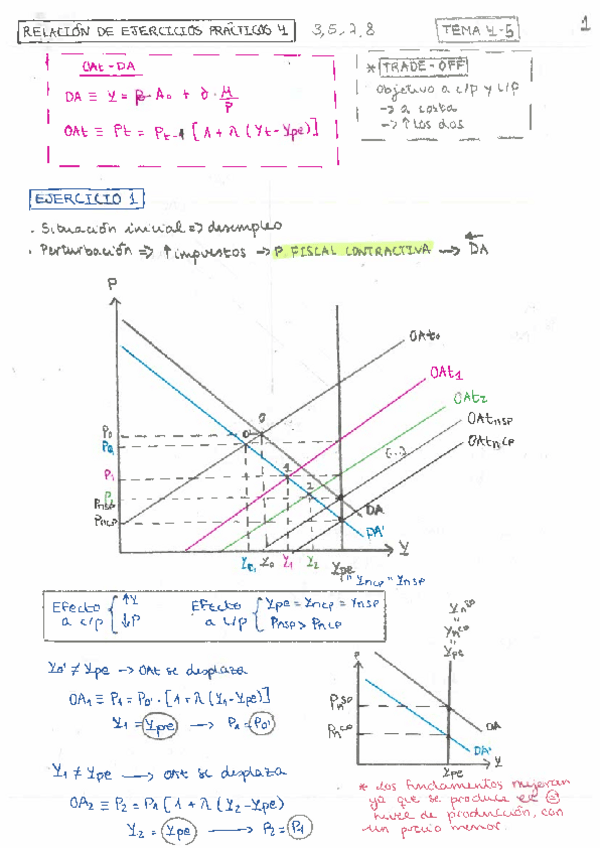 RELACIÓN DE EJERCICIOS PRÁCTICOS 4
3,5,7,8
TEMA 4-5
1
OAt-DA
DA ≡ Y = β·A₀ + ∂·M/P
OAt ≡ Pt = Pt-1 [1 + λ (Yt - Ype)]
* TRADE-OFF
Objetivo a c/p y l/p
→ a costa
→ ↑ los dos
EJERCICIO 1
· Situación inicial => desempleo
· Perturbación => ↑ impuestos → P FISCAL CONTRACTIVA → DA
P
OAt₀
OAt1
OAt2
OAtnSP
OAtnCP
(...)
0
0'
1
2
P₀
P₁
P
PnSP
PnCP
DA
DA'
Y
Y₀ Y1 Y2 Ype
" Yncp = Ynsp
Efecto a c/p { ↑Y ↓P
Efecto a l/p { Ype = Yncp = Ynsp
Pnsp > Pncp
Y₀' ≠ Ype → OAt se desplaza
OA₁ ≡ P₁ = P₀' · [1 + λ (Y₁ - Ype)]
Y₁ = Ype → P₁ = P₀'
Y₁ ≠ Ype → OAt se desplaza
OA₂ ≡ P₂ = P₁ [1 + λ (Y₂ - Ype)
Y₂ = Ype → P₂ = P₁
Yn^SP
"
Yn^CP
"
Ype
P
Pn^SP
Pn^CP
DA
DA'
Y
Ype
* Los fundamentos mejoran
ya que se produce el =
nivel de producción, con
un precio menor.